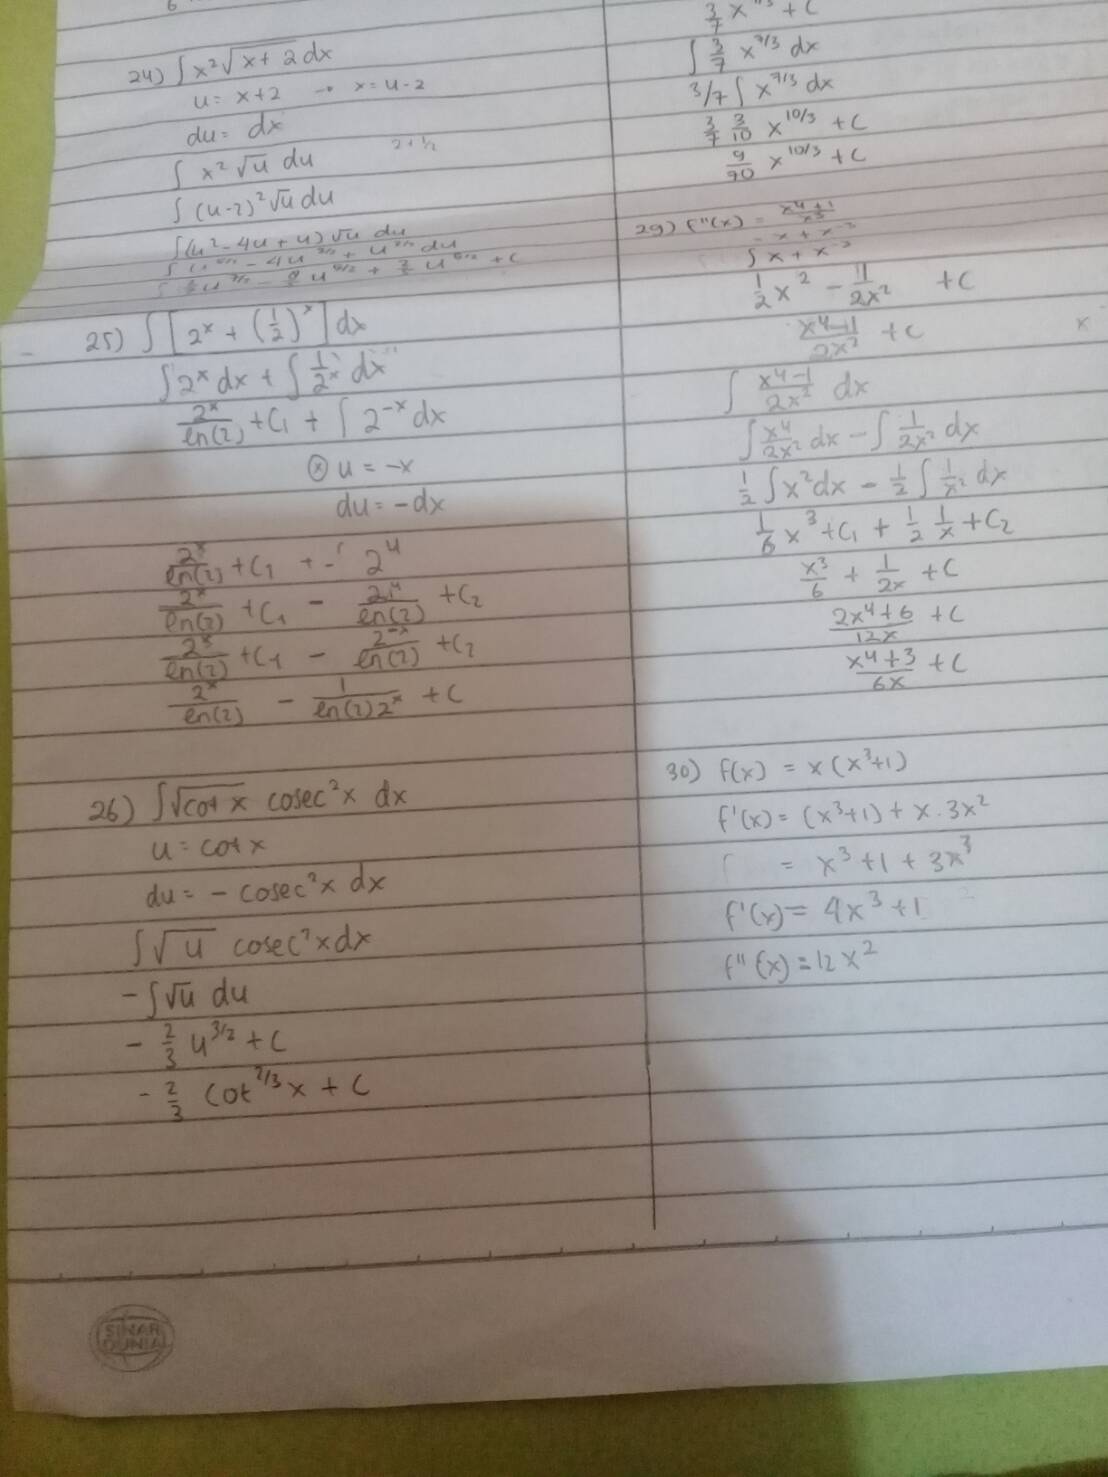 24) ∫ x²√x+2 dx
u = x+2 → x = u-2
du = dx
2+1/2
∫ x² √u du
∫ (u-2)² √u du
∫(u²-4u+4) √u du
25) ∫ [2ˣ + (1/2)ˣ] dx
∫ 2ˣ dx + ∫ 1/2ˣ dx
2ˣ/ln(2) + C₁ + ∫ 2⁻ˣ dx
ⓧ u = -x
du = -dx
2ˣ/ln(2) + C₁ + -∫ 2ᵘ
2ˣ/ln(2) + C₁ - 2ᵘ/ln(2) + C₂
2ˣ/ln(2) + C₁ - 2⁻ˣ/ln(2) + C₂
2ˣ/ln(2) - 1/ln(2)2ˣ + C
26) ∫ √cot x cosec²x dx
u = cot x
du = - cosec²x dx
∫ √u cosec²x dx
- ∫ √u du
- 2/3 u^3/2 + C
- 2/3 cot^2/3 x + C
∫ 3/7 x^7/3 dx
3/7 ∫ x^7/3 dx
3/7 3/10 x^10/3 + C
9/70 x^10/3 + C
29) f''(x) = x⁴+1/x³
= x + x⁻³
∫ x + x⁻³
1/2 x² - 1/2x² + C
x⁴-1/2x² + C
x
∫ x⁴-1/2x² dx
∫ x⁴/2x² dx - ∫ 1/2x² dx
1/2 ∫ x² dx - 1/2 ∫ 1/x² dx
1/6 x³ + C₁ + 1/2 1/x + C₂
x³/6 + 1/2x + C
2x⁴+6/12x + C
x⁴+3/6x + C
30) f(x) = x(x³+1)
f'(x) = (x³+1) + x.3x²
= x³+1+3x³
f'(x) = 4x³+1
f''(x) = 12x²
SINAR DUNIA